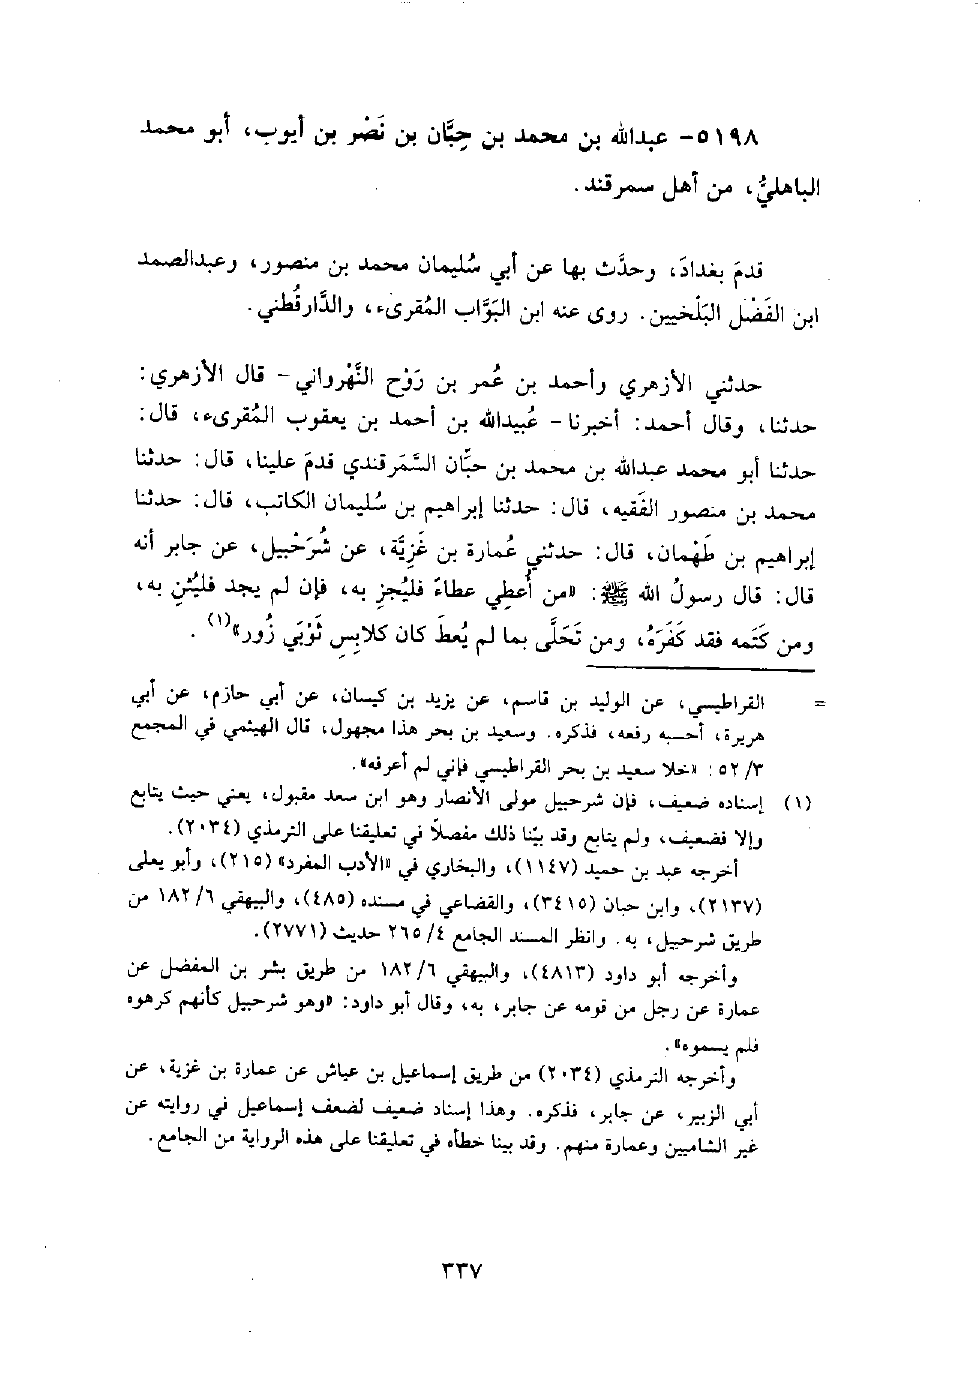 ٥١٩٨- عبدالله بن محمد بن حِبَّان بن نَصْر بن أيوب، أبو محمد
الباهليُّ، من أهل سمرقند.
قدمَ بغدادَ، وحدَّث بها عن أبي سُليمان محمد بن منصور، وعبدالصمد
ابن الفَضْل البَلْخيين. روى عنه ابن البَوَّاب المُقرىء، والدَّارقُطني.
حدثني الأزهري وأحمد بن عُمر بن رَوْح النَّهْرواني- قال الأزهري:
حدثنا، وقال أحمد: أخبرنا- عُبيدالله بن أحمد بن يعقوب المُقرىء، قال:
حدثنا أبو محمد عبدالله بن محمد بن حبَّان السَّمَرقندي قدمَ علينا، قال: حدثنا
محمد بن منصور الفَقيه، قال: حدثنا إبراهيم بن سُليمان الكاتب، قال: حدثنا
إبراهيم بن طَهْمان، قال: حدثني عُمارة بن غَزِيَّة، عن شُرَحْبيل، عن جابر أنه
قال: قال رسولُ الله ﷺ: «من أُعطِي عطاءً فليُجزِ به، فإن لم يجد فليُثنِ به،
ومن كَتَمه فقد كَفَرَهُ، ومن تَحَلَّى بما لم يُعطَ كان كلابِسِ ثَوْبَي زُور»(١).
= القراطيسي، عن الوليد بن قاسم، عن يزيد بن كيسان، عن أبي حازم، عن أبي
هريرة، أحسبه رفعه، فذكره. وسعيد بن بحر هذا مجهول، قال الهيثمي في المجمع
٣/ ٥٢: «خلا سعيد بن بحر القراطيسي فإني لم أعرفه».
(١) إسناده ضعيف، فإن شرحبيل مولى الأنصار وهو ابن سعد مقبول، يعني حيث يتابع
وإلا فضعيف، ولم يتابع وقد بيّنا ذلك مفصلاً في تعليقنا على الترمذي (٢٠٣٤).
أخرجه عبد بن حميد (١١٤٧)، والبخاري في «الأدب المفرد» (٢١٥)، وأبو يعلى
(٢١٣٧)، وابن حبان (٣٤١٥)، والقضاعي في مسنده (٤٨٥)، والبيهقي ٦/ ١٨٢ من
طريق شرحبيل، به. وانظر المسند الجامع ٤/ ٢٦٥ حديث (٢٧٧١).
وأخرجه أبو داود (٤٨١٣)، والبيهقي ٦/ ١٨٢ من طريق بشر بن المفضل عن
عمارة عن رجل من قومه عن جابر، به، وقال أبو داود: «وهو شرحبيل كأنهم كرهوه
فلم يسموه».
وأخرجه الترمذي (٢٠٣٤) من طريق إسماعيل بن عياش عن عمارة بن غزية، عن
أبي الزبير، عن جابر، فذكره. وهذا إسناد ضعيف لضعف إسماعيل في روايته عن
غير الشاميين وعمارة منهم. وقد بينا خطأه في تعليقنا على هذه الرواية من الجامع.
٣٣٧